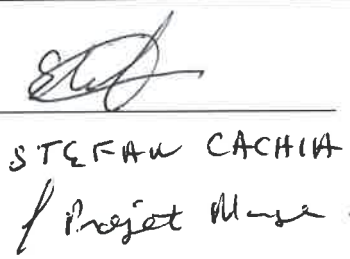 STEFAN CACHIA
Project Manager